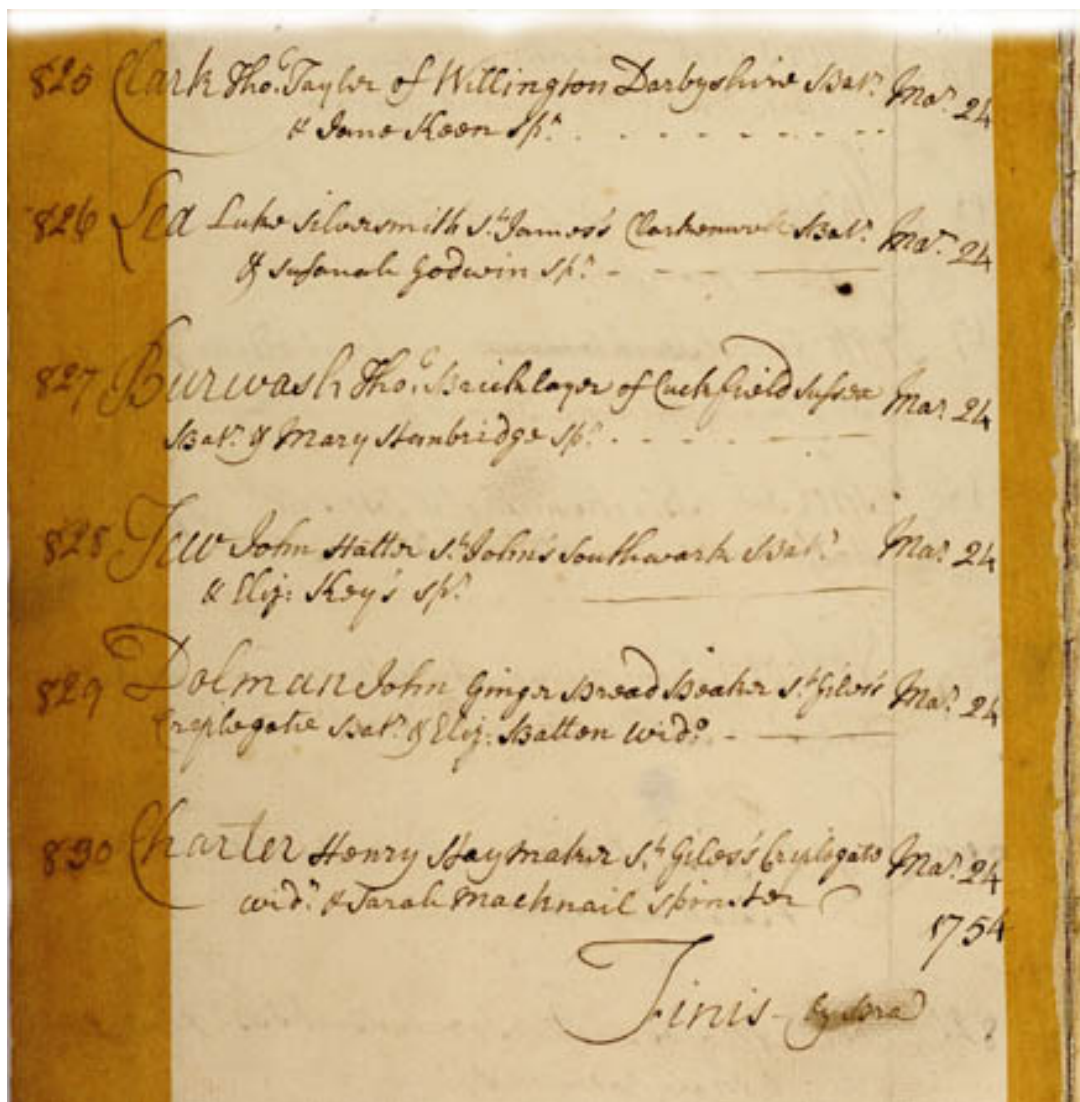 825 Clark Tho.s Tayler of Willington Darbyshire Bat.r Mar. 24
& Jane Keen Sp.r
826 Lea Luke Silversmith St. James's Clarkenwell Bat.r Mar. 24
& Susanah Godwin Sp.r
827 Burwash Tho.s Bricklayer of Cuckfield Sussex Mar. 24
Bat.r & Mary Hambridge Sp.r
828 John Hatter St. John's Southwark Bat.r Mar. 24
& Eliz: Key's Sp.r
829 Dolman John Ginger Bread Beaker St. Giles's Mar. 24
Criplegate Bat.r & Eliz: Batton Wid.o
830 Charter Henry Staymaker St. Giles's Criplegate Mar. 24
Wid.r & Sarah Macknail Spinster
1754
Finis